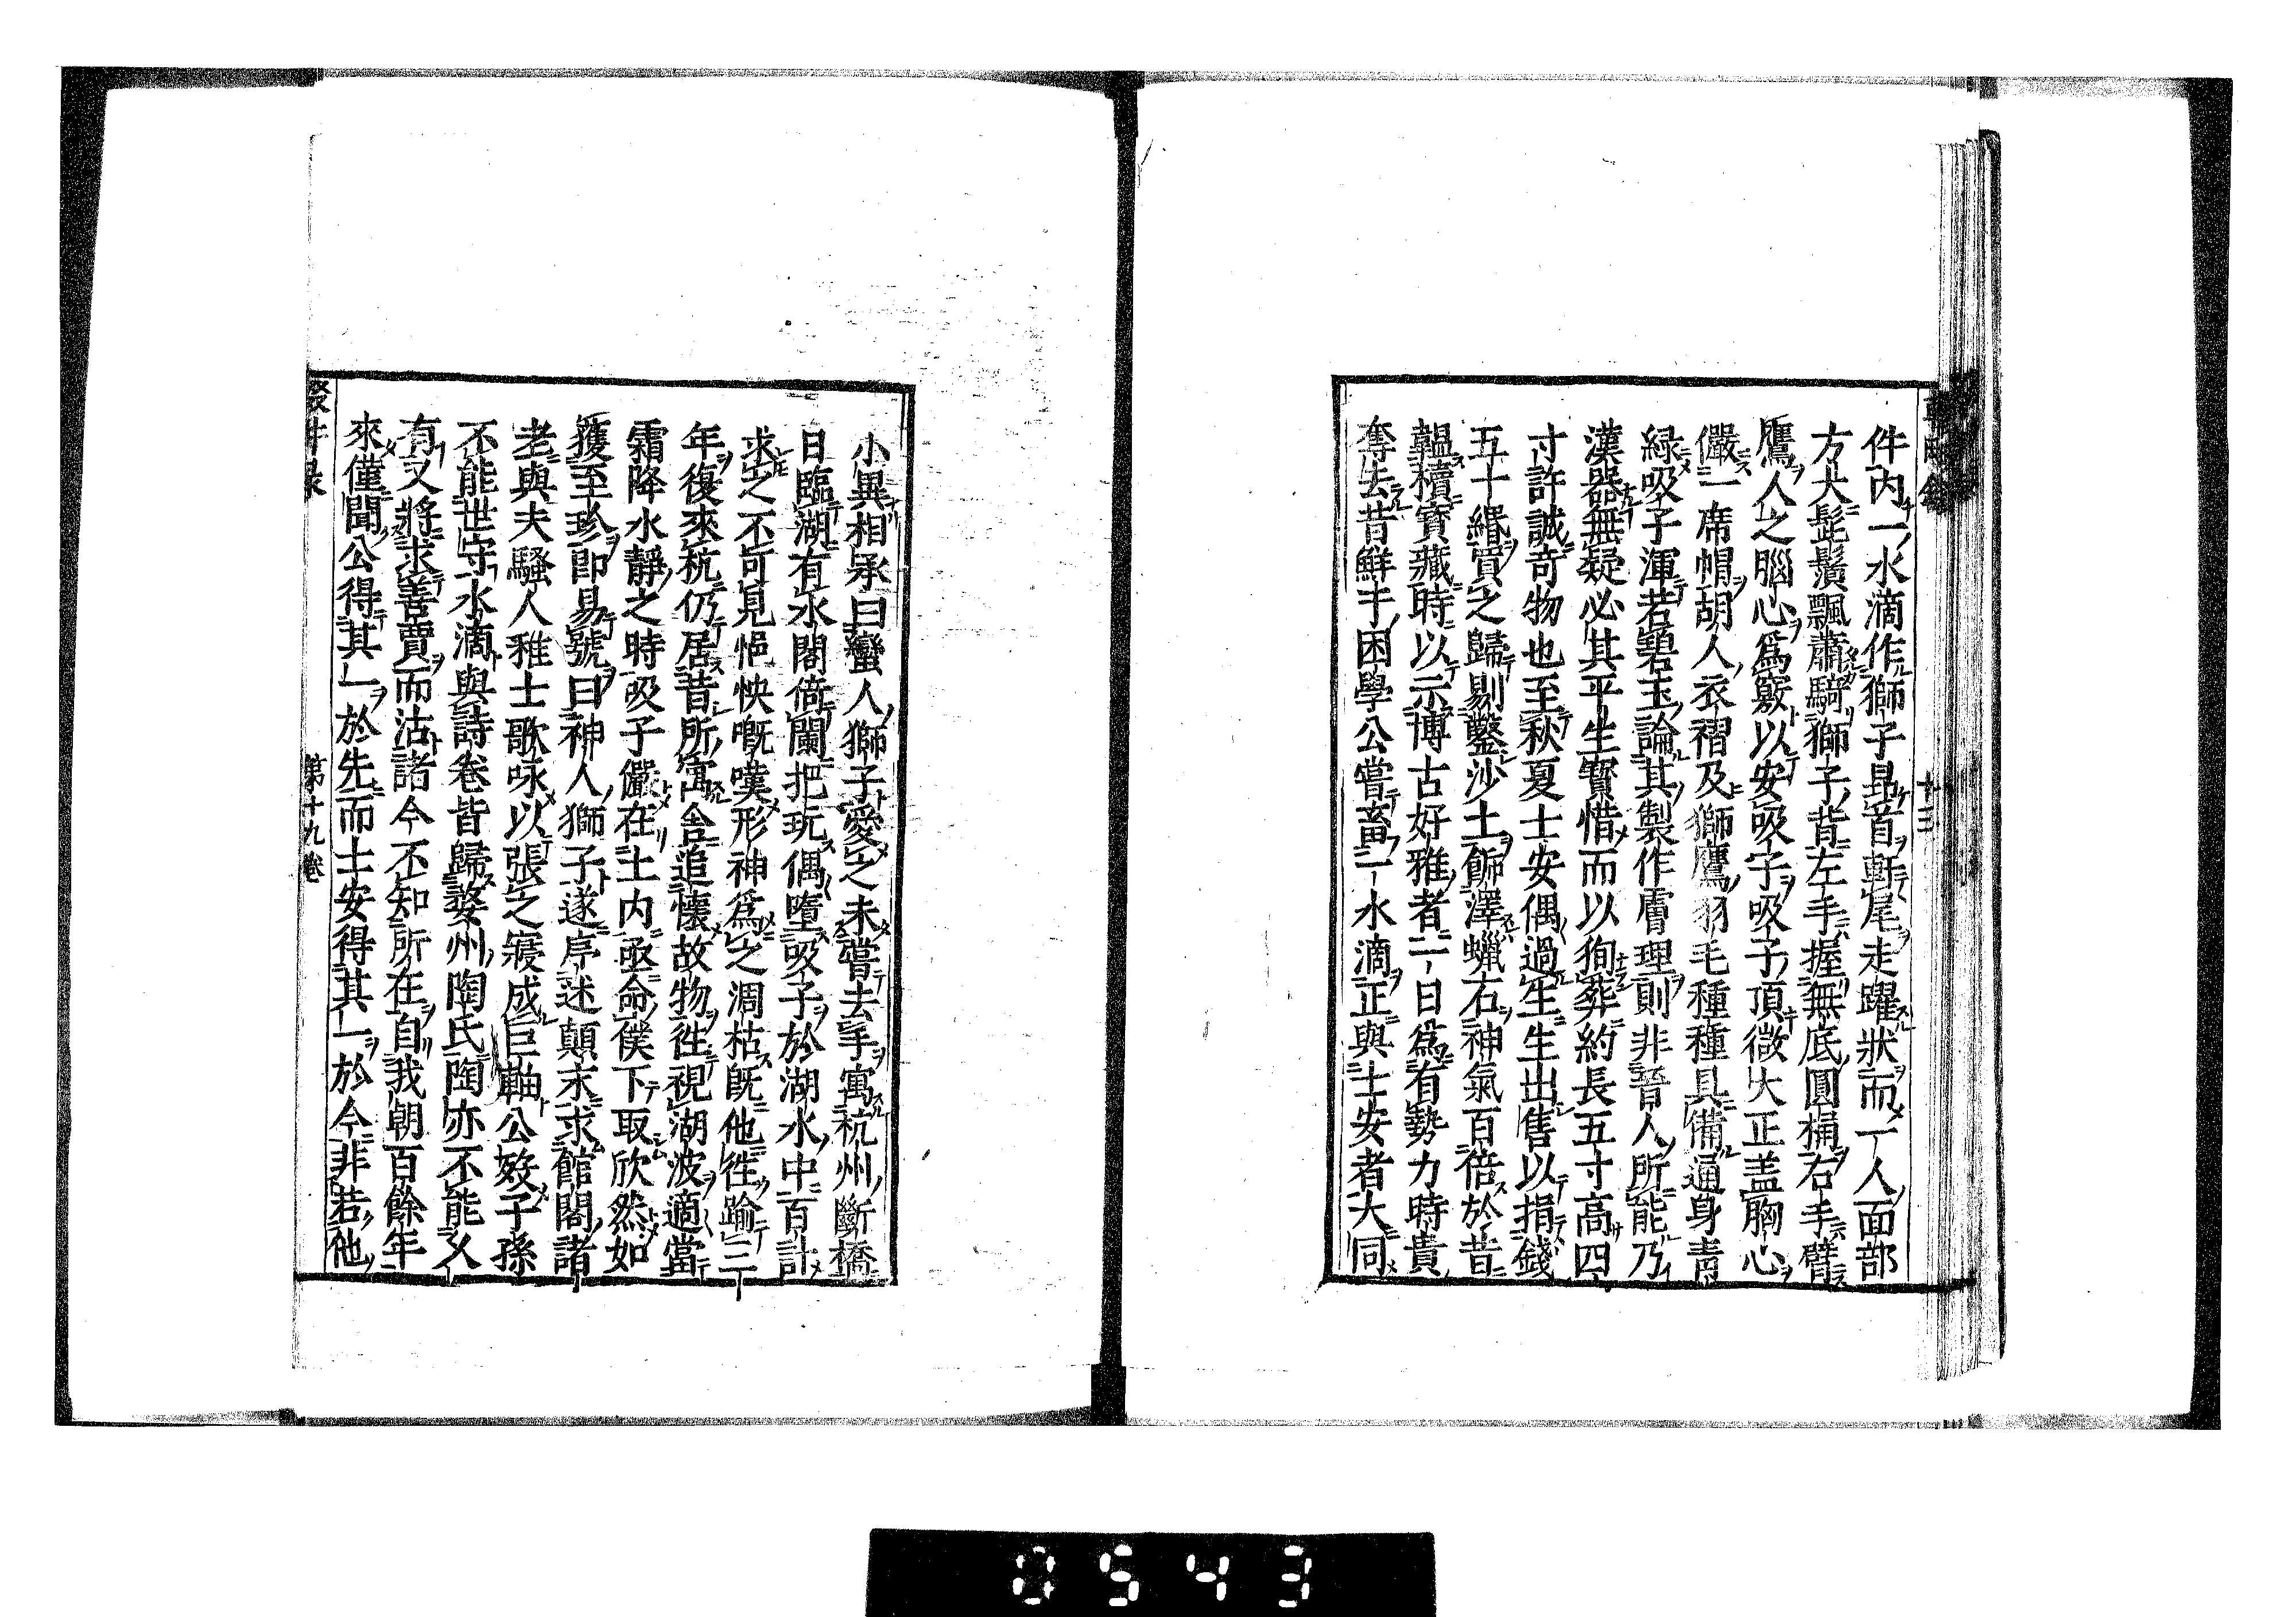 件内一水滴作獅子昂首軒尾走躍狀而一人面部
方大髭鬚飄蕭騎獅子背左手握無底圓桶右手臂
鷹人之腦心爲竅以安吸子吸子頂微大正盖胸心
儼一席帽胡人衣褶及獅鷹羽毛種種具備通身青
緑吸子渾若碧玉論其製作膚理則非晉人所能乃
漢器無疑必其平生寳惜而以狥葬約長五寸高四
寸許誠奇物也至秋夏士安偶過生生出售以損錢
五十緡買之歸剔鑿沙土飾澤蠟石神氣百倍於昔
韞櫝寳藏時以示博古好雅者二日爲有勢力時貴
奪去昔鮮于困學公嘗畜一水滴正與士安者大同
小異相承曰蠻人獅子愛之未嘗去手寓杭州斷橋
日臨湖有水閣倚闌把玩偶墮吸子於湖水中百計
求之不可見悒怏嘅嘆形神爲之凋枯旣他徃踰三
年復來杭仍居昔所寓舍追懷故物徃視湖波適當
霜降水靜之時吸子儼在土内亟命僕下取欣然如
獲至珍卽易號曰神人獅子遂序述顛末求館閣諸
老與夫騷人雅士歌咏以張之寢成巨軸公歿子孫
不能世守水滴與詩卷皆歸婺州陶氏陶亦不能乆
有又將求善賈而沽諸今不知所在自我朝百餘年
來僅聞公得其一於先而士安得其一於今非若他
第十九卷